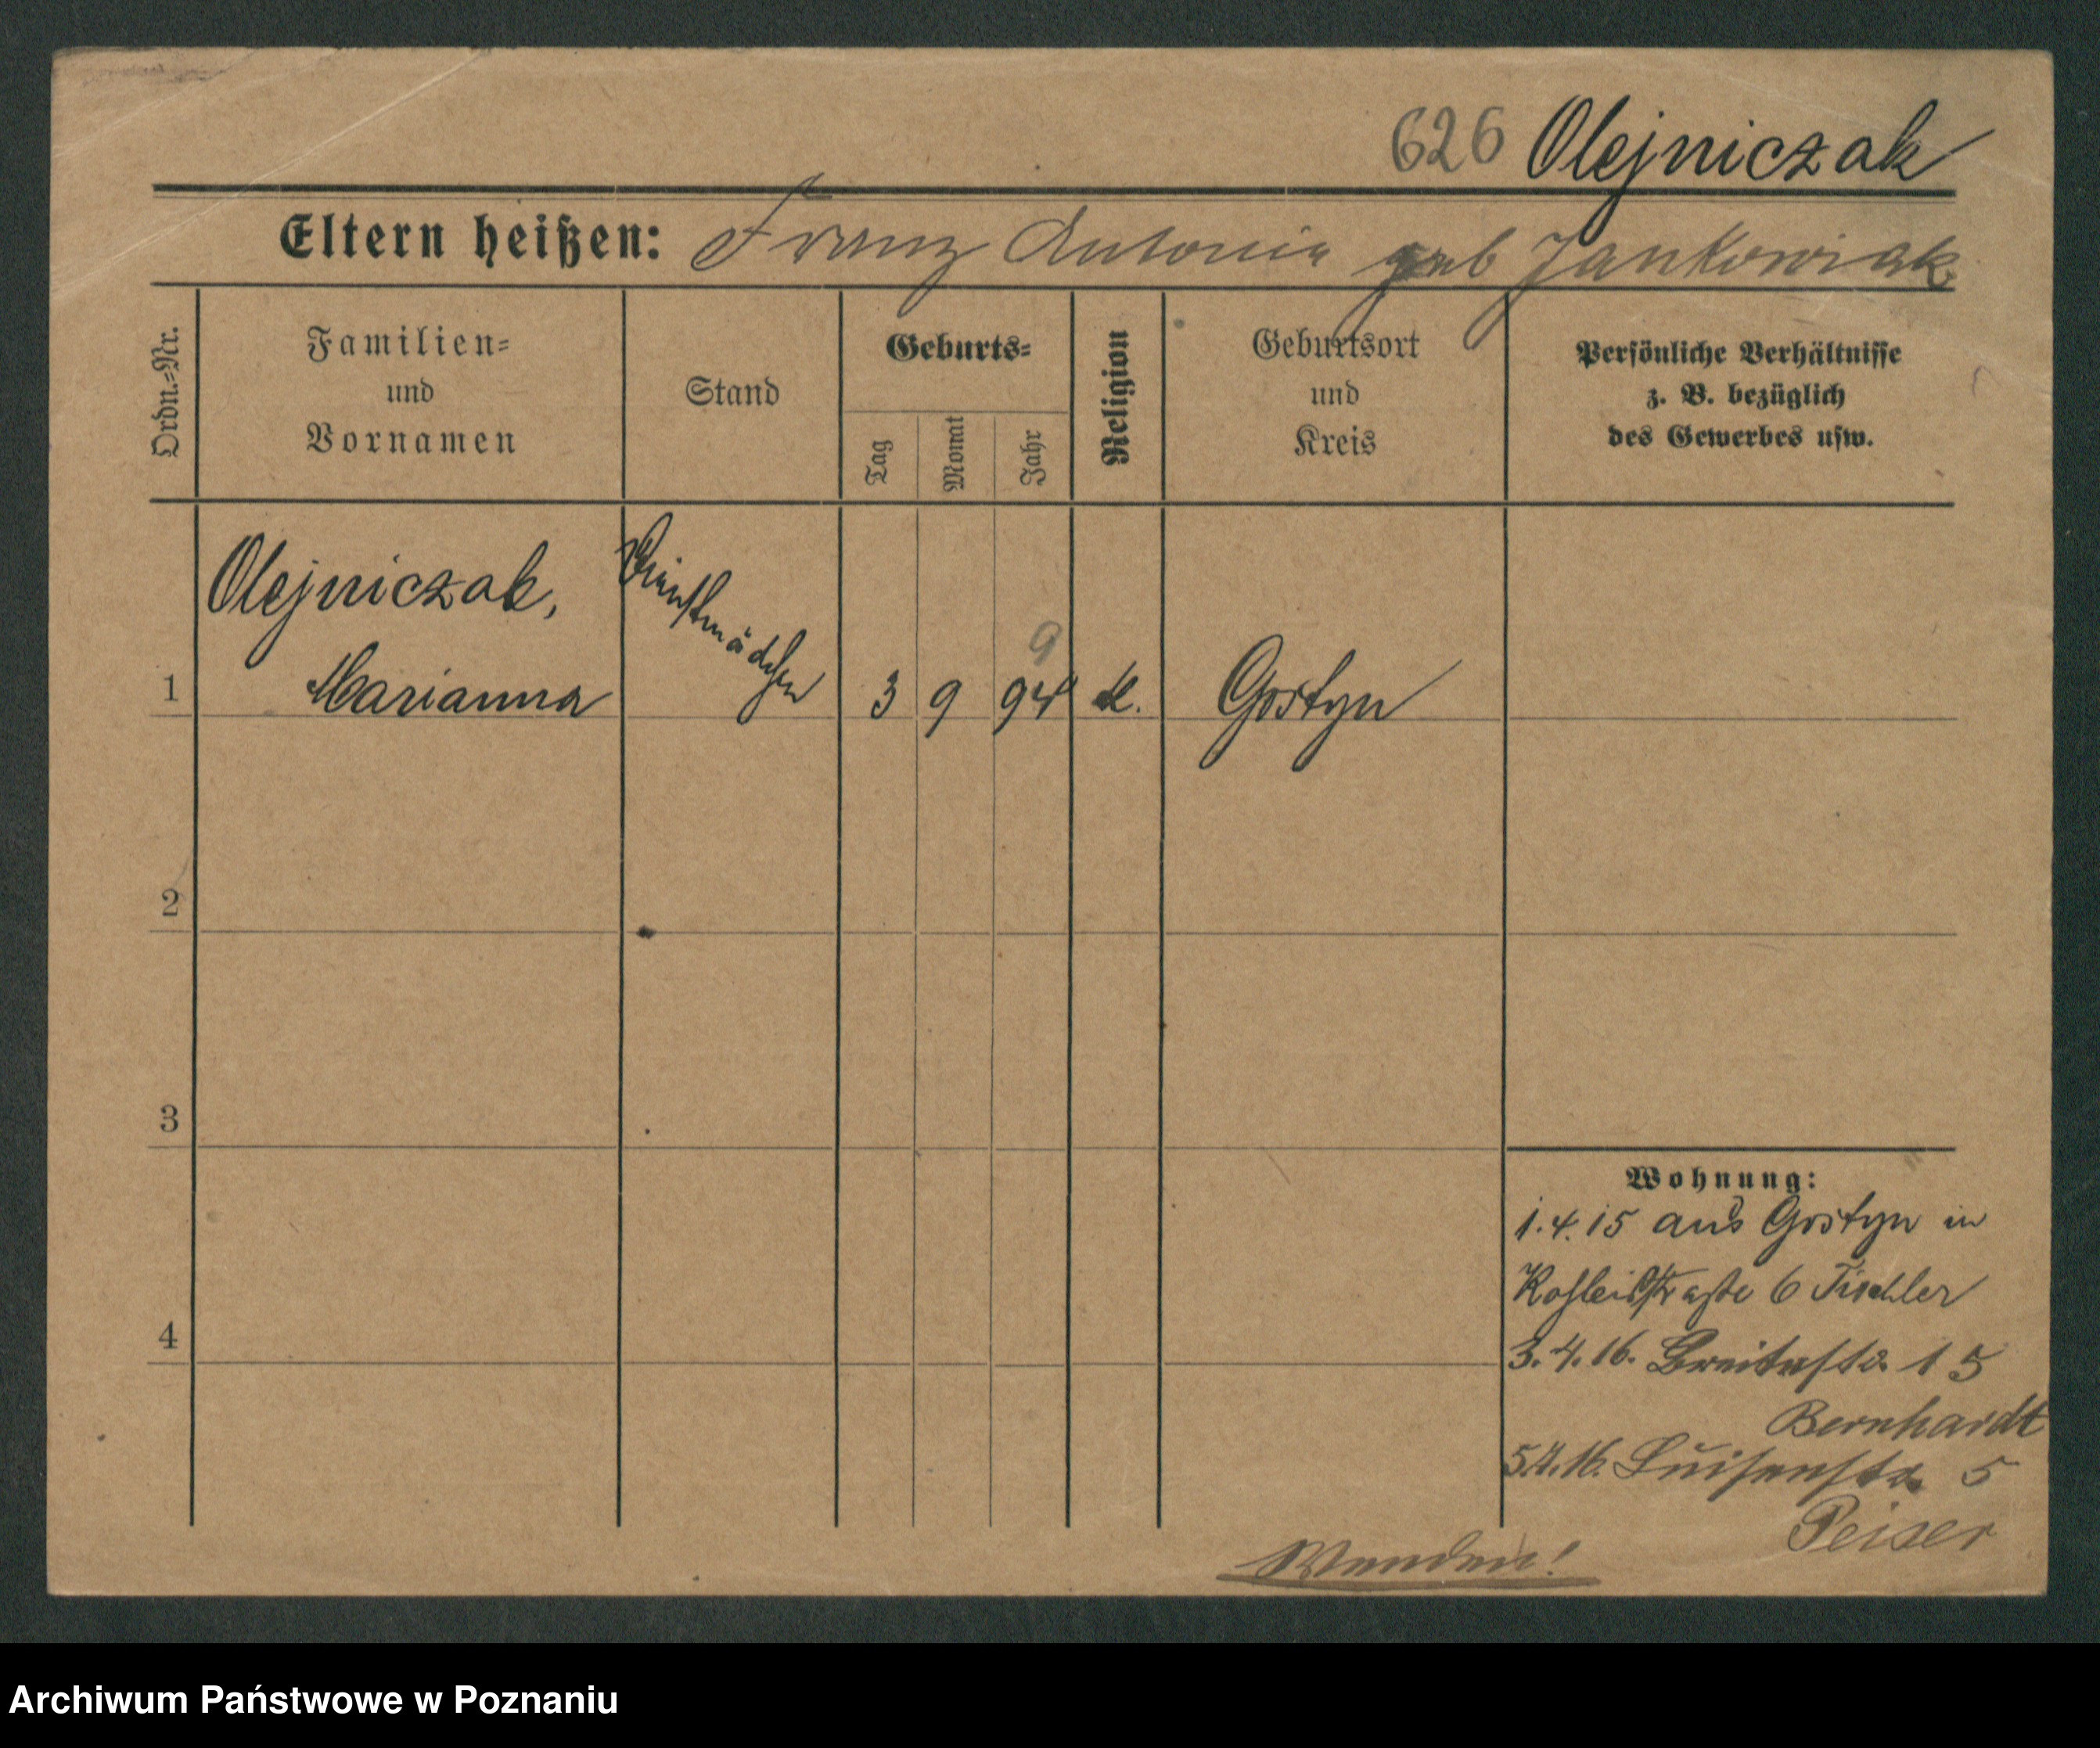 626 Olejniczak
Eltern heißen: Franz Antonia geb Jankowiak
Ordn.=Nr.
Familien=
und
Vornamen
Stand
Geburts=
Tag
Monat
Jahr
Religion
Geburtsort
und
Kreis
Persönliche Verhältnisse
z. B. bezüglich
des Gewerbes usw.
Olejniczak,
Dienstmädchen
9
1 Marianna 3 9 94 k. Gostyn
2
3
4
Wohnung:
1.4.15 aus Gostyn in
6 Tischler
3.4.16. Breitestr. 15
Bernhardt
5.4.16. Luisenstr. 5
Peiser
Wenden!
Archiwum Państwowe w Poznaniu